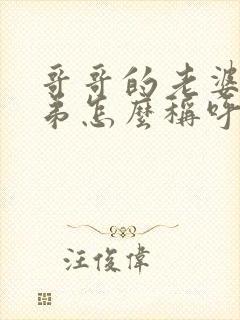 哥哥的老婆
弟怎麼稱呼
汪俊偉